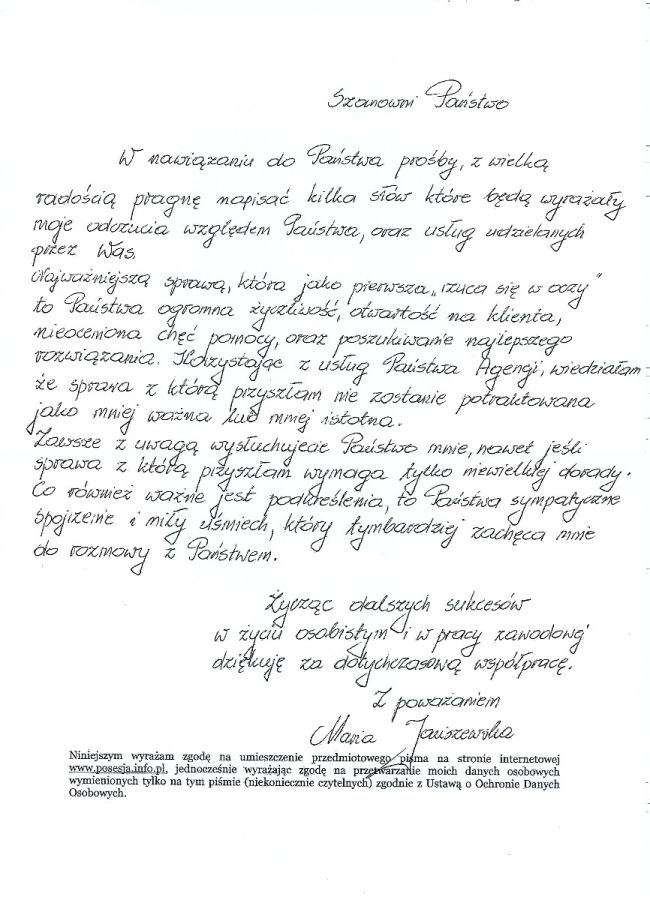 Szanowni Państwo
W nawiązaniu do Państwa prośby, z wielką
radością pragnę napisać kilka słów które będą wyrażały
moje odczucia względem Państwa, oraz usług udzielanych
przez Was.
Najważniejszą sprawą, która jako pierwsza „rzuca się w oczy"
to Państwa ogromna życzliwość, otwartość na klienta,
nieoceniona chęć pomocy, oraz poszukiwanie najlepszego
rozwiązania. Korzystając z usług Państwa Agencji, wiedziałam
że sprawa z którą przyszłam nie zostanie potraktowana
jako mniej ważna lub mniej istotna.
Zawsze z uwagą wysłuchujecie Państwo mnie, nawet jeśli
sprawa z którą przyszłam wymaga tylko niewielkiej dorady.
Co również ważne jest podkreślenia, to Państwa sympatyczne
spojrzenie i miły uśmiech, który tymbardziej zachęca mnie
do rozmowy z Państwem.
Życząc dalszych sukcesów
w życiu osobistym i w pracy zawodowej
dziękuję za dotychczasową współpracę.
Z poważaniem
Maria Janiszewska
Niniejszym wyrażam zgodę na umieszczenie przedmiotowego pisma na stronie internetowej
www.posesja.info.pl, jednocześnie wyrażając zgodę na przetwarzanie moich danych osobowych
wymienionych tylko na tym piśmie (niekoniecznie czytelnych) zgodnie z Ustawą o Ochronie Danych
Osobowych.